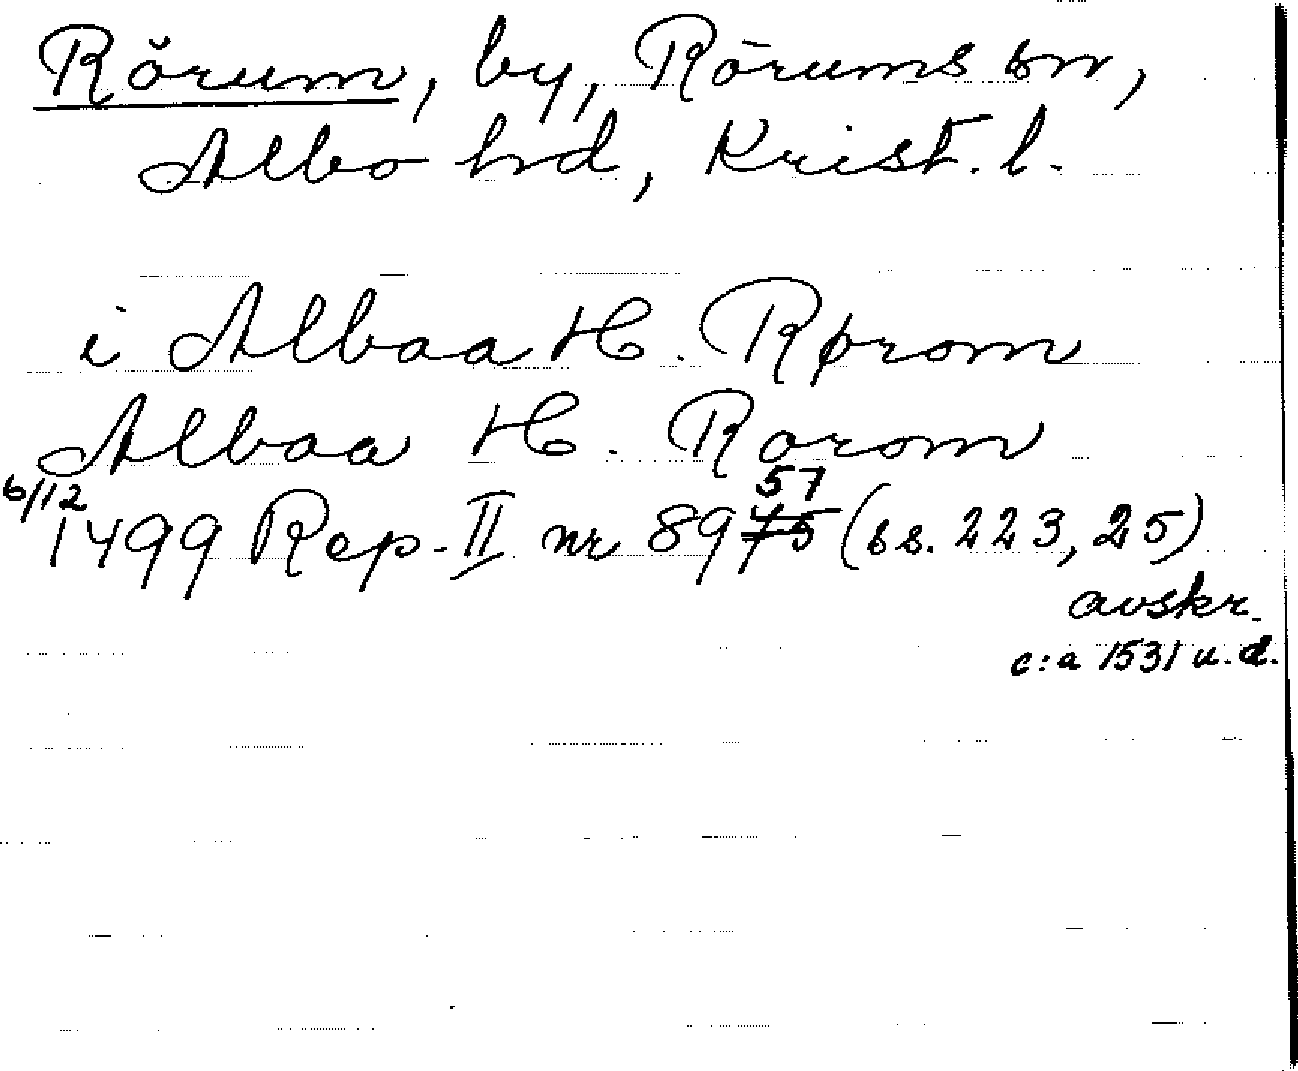 Rörum, by, Rörums sn,
Albo hd, Krist. l.
i Albaa H. Rørom
Albaa H. Rorom
6/12 1499 Rep. II nr 8957 (ss. 223, 25)
avskr.
c:a 1531 u.d.